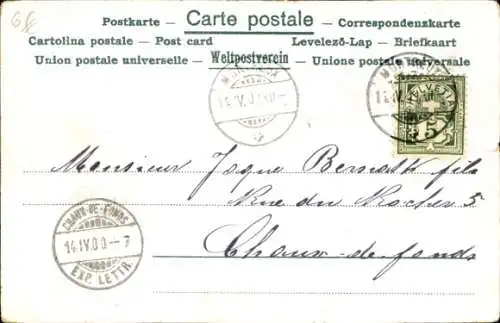 Postkarte – Carte postale – Correspondenzkarte
Cartolina postale – Post card Levelező-Lap – Briefkaart
Union postale universelle – Weltpostverein – Unione postale universale
MONTREUX
MONTREUX
HELVETIA
5
Monsieur Jaque fils
Rue du Rocher 5
Chaux-de-fonds
CHAUX-DE-FONDS
14.IV.00–7
EXP. LETTR.